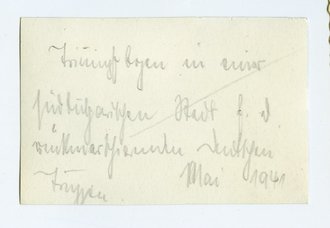 Triumpfbogen in einer
südbulgarischen Stadt f. d.
rückmarschierenden deutschen
Truppen. Mai 1941